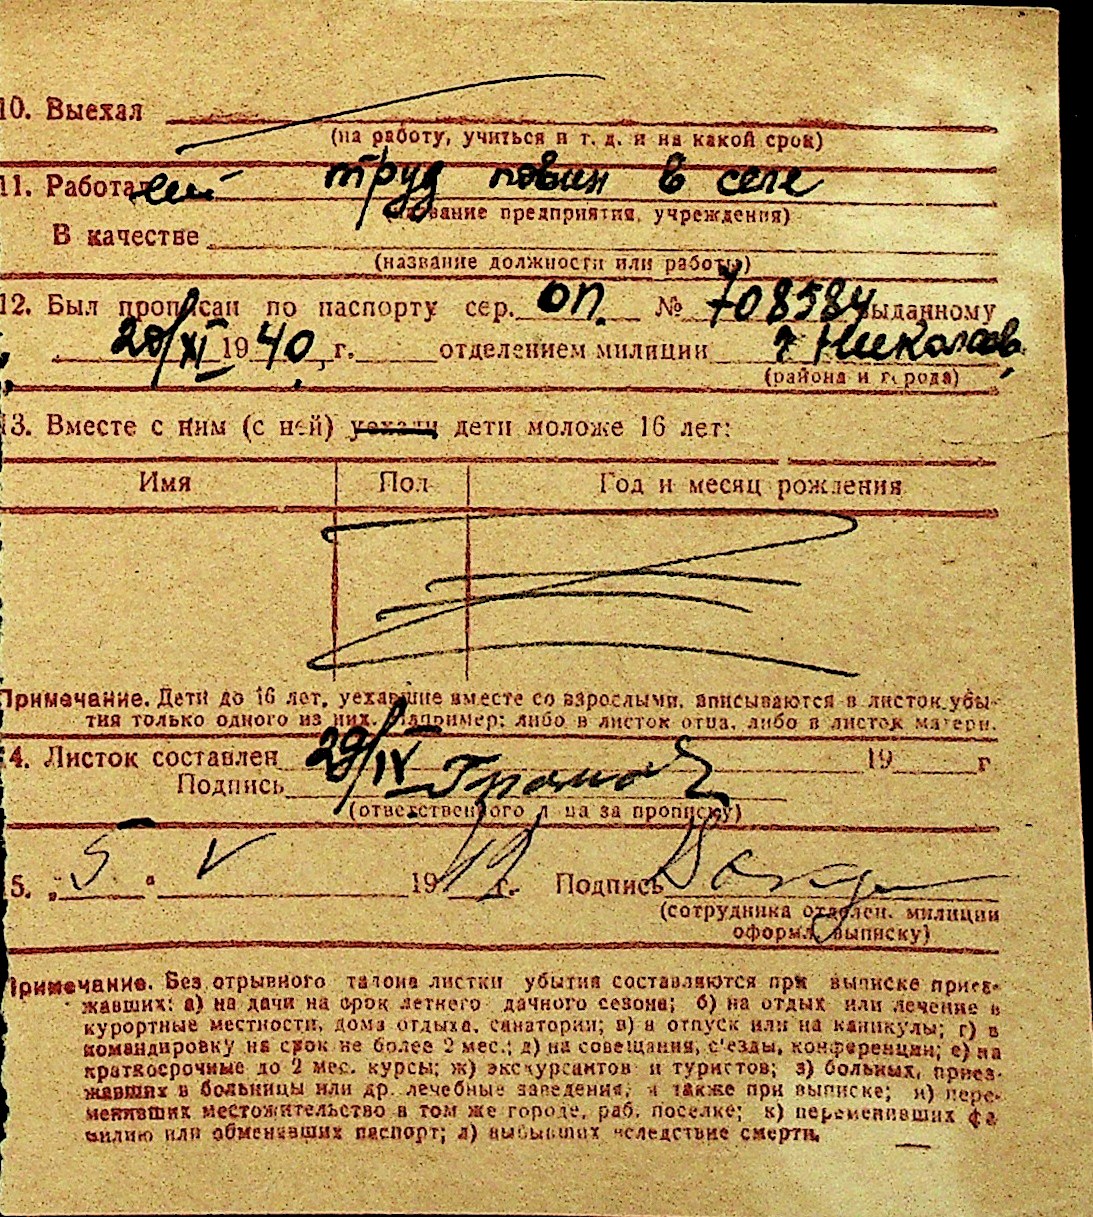 10. Выехал
(на работу, учиться и т. д. и на какой срок)
11. Работал труд повин в селе
(название предприятия, учреждения)
В качестве
(название должности или работы)
12. Был прописан по паспорту сер. ОП. № 708584 выданному
20/XI 1940, г. отделением милиции г Николаев,
(района и города)
13. Вместе с ним (с ней) уехали дети моложе 16 лет:
Имя Пол Год и месяц рождения
Примечание. Дети до 16 лет, уехавшие вместе со взрослыми, вписываются в листок убы-
тия только одного из них. Например: либо в листок отца, либо в листок матери.
14. Листок составлен 29/IV 19 г
Подпись
(ответственного лица за прописку)
15. „5" V 1949 г. Подпись
(сотрудника отделен. милиции
оформл. выписку)
Примечание. Без отрывного талона листки убытия составляются при выписке приез-
жавших: а) на дачи на срок летнего дачного сезона; б) на отдых или лечение в
курортные местности, дома отдыха, санатории; в) в отпуск или на каникулы; г) в
командировку на срок не более 2 мес.; д) на совещания, с'езды, конференции; е) на
краткосрочные до 2 мес. курсы; ж) экскурсантов и туристов; з) больных, приез-
жавших в больницы или др. лечебные заведения, а также при выписке; и) пере-
менивших местожительство в том же городе, раб. поселке; к) переменивших фа
милию или обменявших паспорт; л) выбывших вследствие смерти.